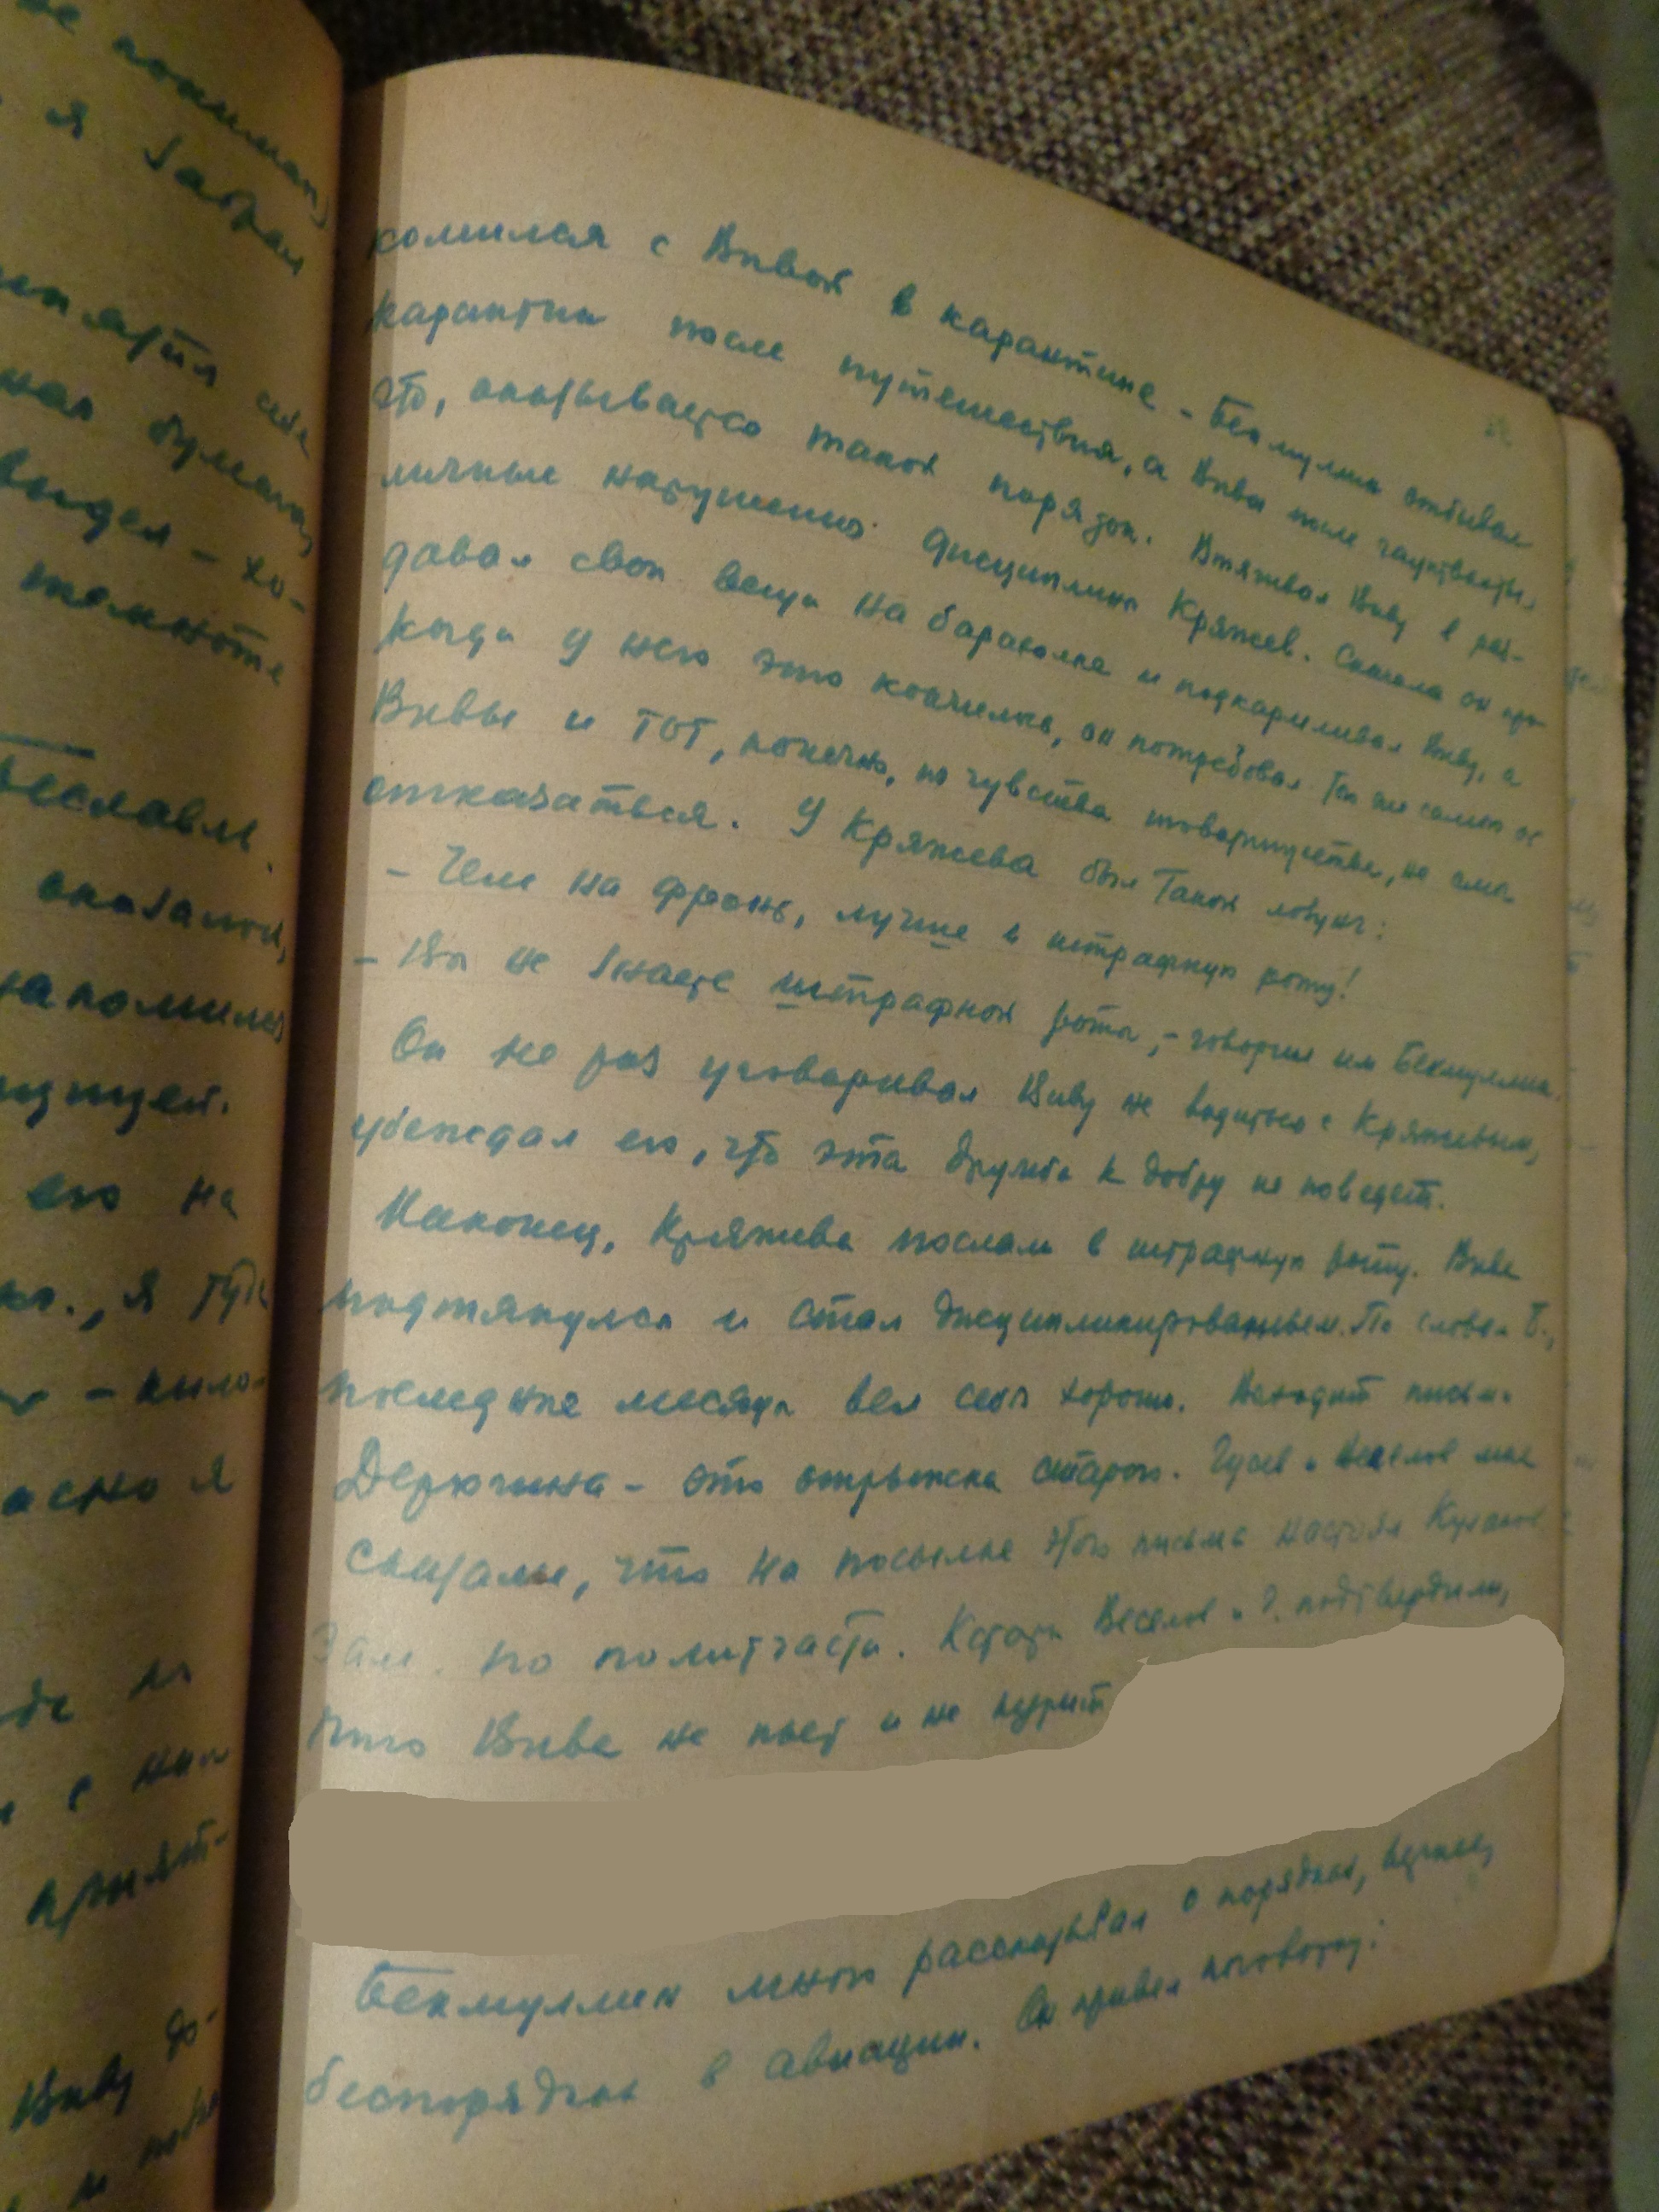 комился с Вивой в карантине – Бекмуллин отбывал
карантин после путешествия, а Вива после гауптвахты,
это, оказывается такой порядок. Втягивал Виву в раз-
личные нарушения дисциплины Кряжев. Сначала он про-
давал свои вещи на барахолке и подкармливал Виву, а
когда у него это кончилось, он потребовал того же самого от
Вивы и тот, конечно, из чувства товарищества, не смог
отказаться. У Кряжева был такой лозунг:
– Чем на фронт, лучше в штрафную роту!
– Вы не знаете штрафной роты, – говорил им Бекмуллин.
Он не раз уговаривал Виву не водиться с Кряжевым,
убеждал его, что эта дружба к добру не поведет.
Наконец, Кряжева послали в штрафную роту. Вива
подтянулся и стал дисциплинированным. По словам Б.,
последние месяцы вел себя хорошо. Насчет письма
Дерюгина – это отрыжка старого. Гусев и Веселов мне
сказали, что на посылке этого письма настоял
зам. по политчасти. Кстати Веселов и Г. подтвердили,
что Вива не пьет и не курит
Бекмуллин много рассказывал о порядках, вернее,
беспорядках в авиации. Он привел поговорку:
не понимаю
я забрал
себя
ная бумага,
выдел – хо-
темноте
Беславль.
оказалось,
напомнил
его на
я туда
асно я
с ним
прият-
Виву до-